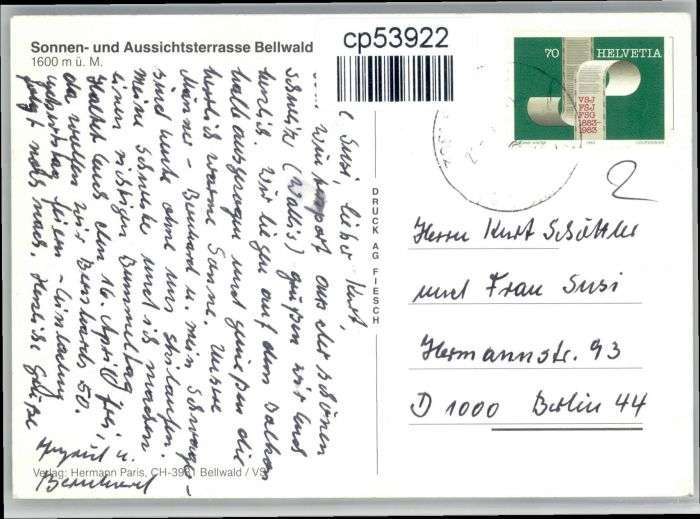 Sonnen- und Aussichtsterrasse Bellwald
1600 m ü. M.
cp53922
70 HELVETIA
VSJ
FSJ
FSG
1883-
1983
2
Susi, lieber Kurt,
aus der schönen
Schweiz (Wallis) grüßen wir Euch
herzlich. Wir liegen auf dem Balkon
halb ausgezogen und genießen die
herrlich warme Sonne. Unsere
Männer - Bernhard u. mein Schwager -
sind heute ohne uns skilaufen.
meine Schwester und ich machen
einen richtigen Bummeltag.
Haltet Euch den 16. April frei,
da wollen wir Bernhards 50.
Geburtstag feiern - Einladung
folgt noch nach. Herzliche Grüße
u.
Bernhard
DRUCK AG FIESCH
Herrn Kurt Schüttler
und Frau Susi
Hermannstr. 93
D 1000 Berlin 44
Verlag: Hermann Paris, CH-3981 Bellwald / VS